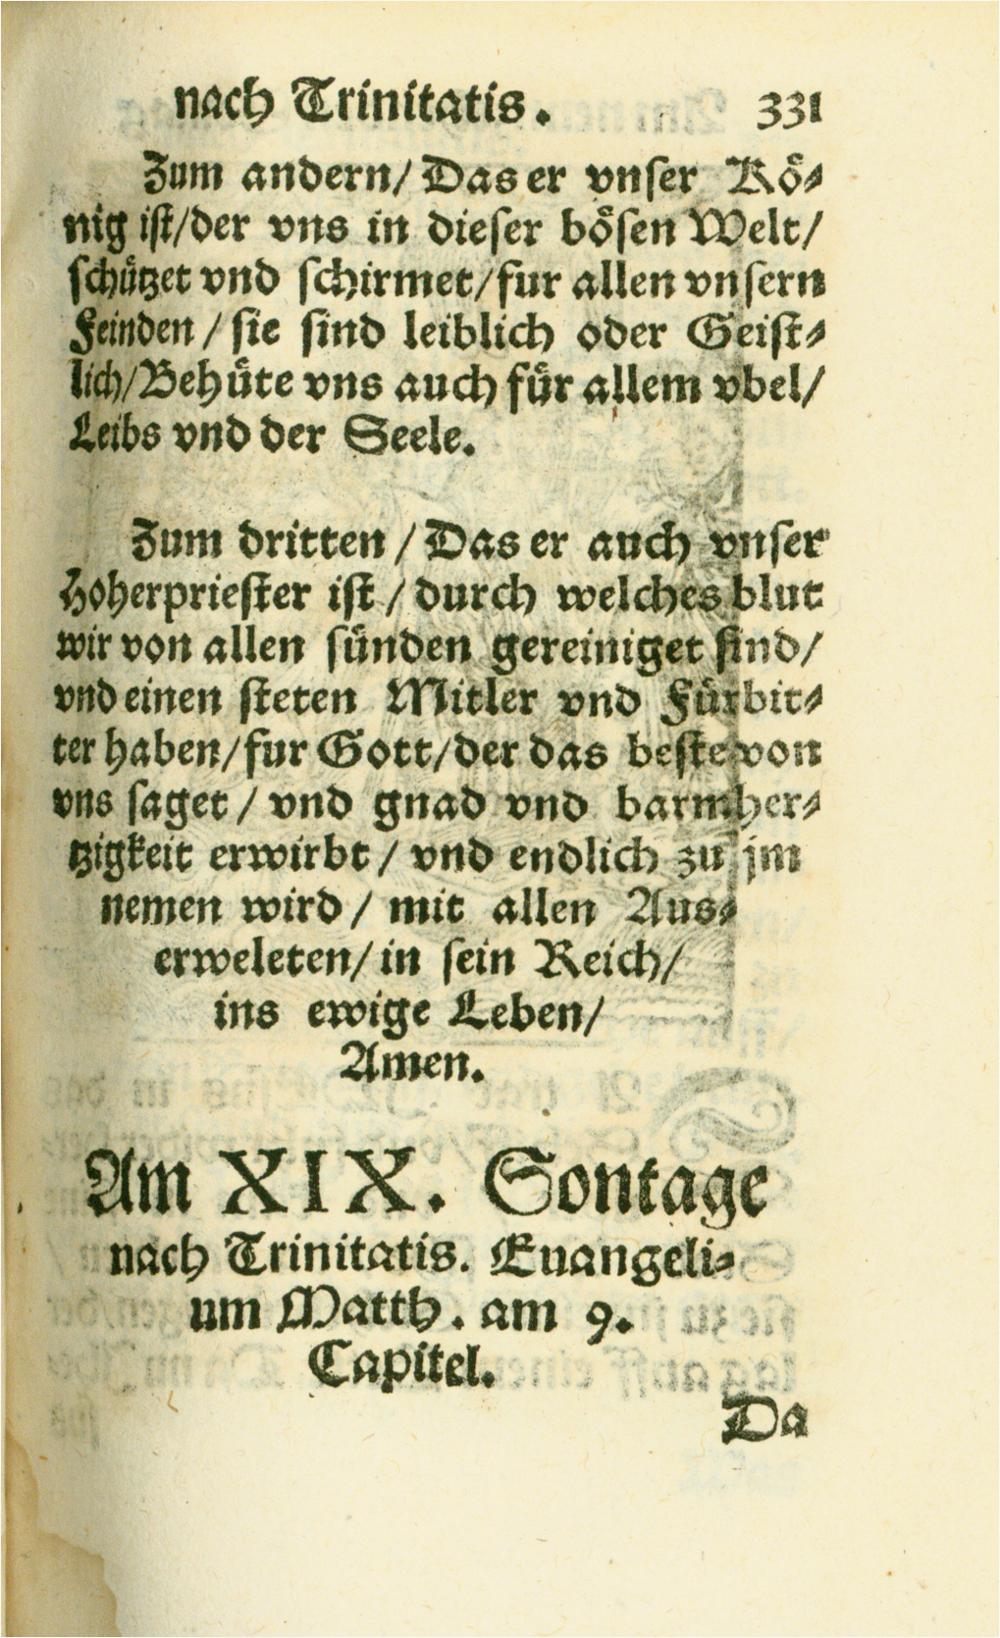 nach Trinitatis. 331
Zum andern/ Das er vnser Kö⸗
nig ist/der vns in dieser bösen Welt/
schützet vnd schirmet/fur allen vnsern
Feinden / sie sind leiblich oder Geist⸗
lich/Behüte vns auch für allem vbel/
Leibs vnd der Seele.
Zum dritten / Das er auch vnser
Hoherpriester ist / durch welches blut
wir von allen sünden gereiniget sind/
vnd einen steten Mitler vnd Fürbit⸗
ter haben/fur Gott/der das beste von
vns saget / vnd gnad vnd barmher⸗
tzigkeit erwirbt / vnd endlich zu jm
nemen wird / mit allen Aus⸗
erweleten/ in sein Reich/
ins ewige Leben/
Amen.
Am XIX. Sontage
nach Trinitatis. Euangeli⸗
um Matth. am 9.
Capitel.
Da